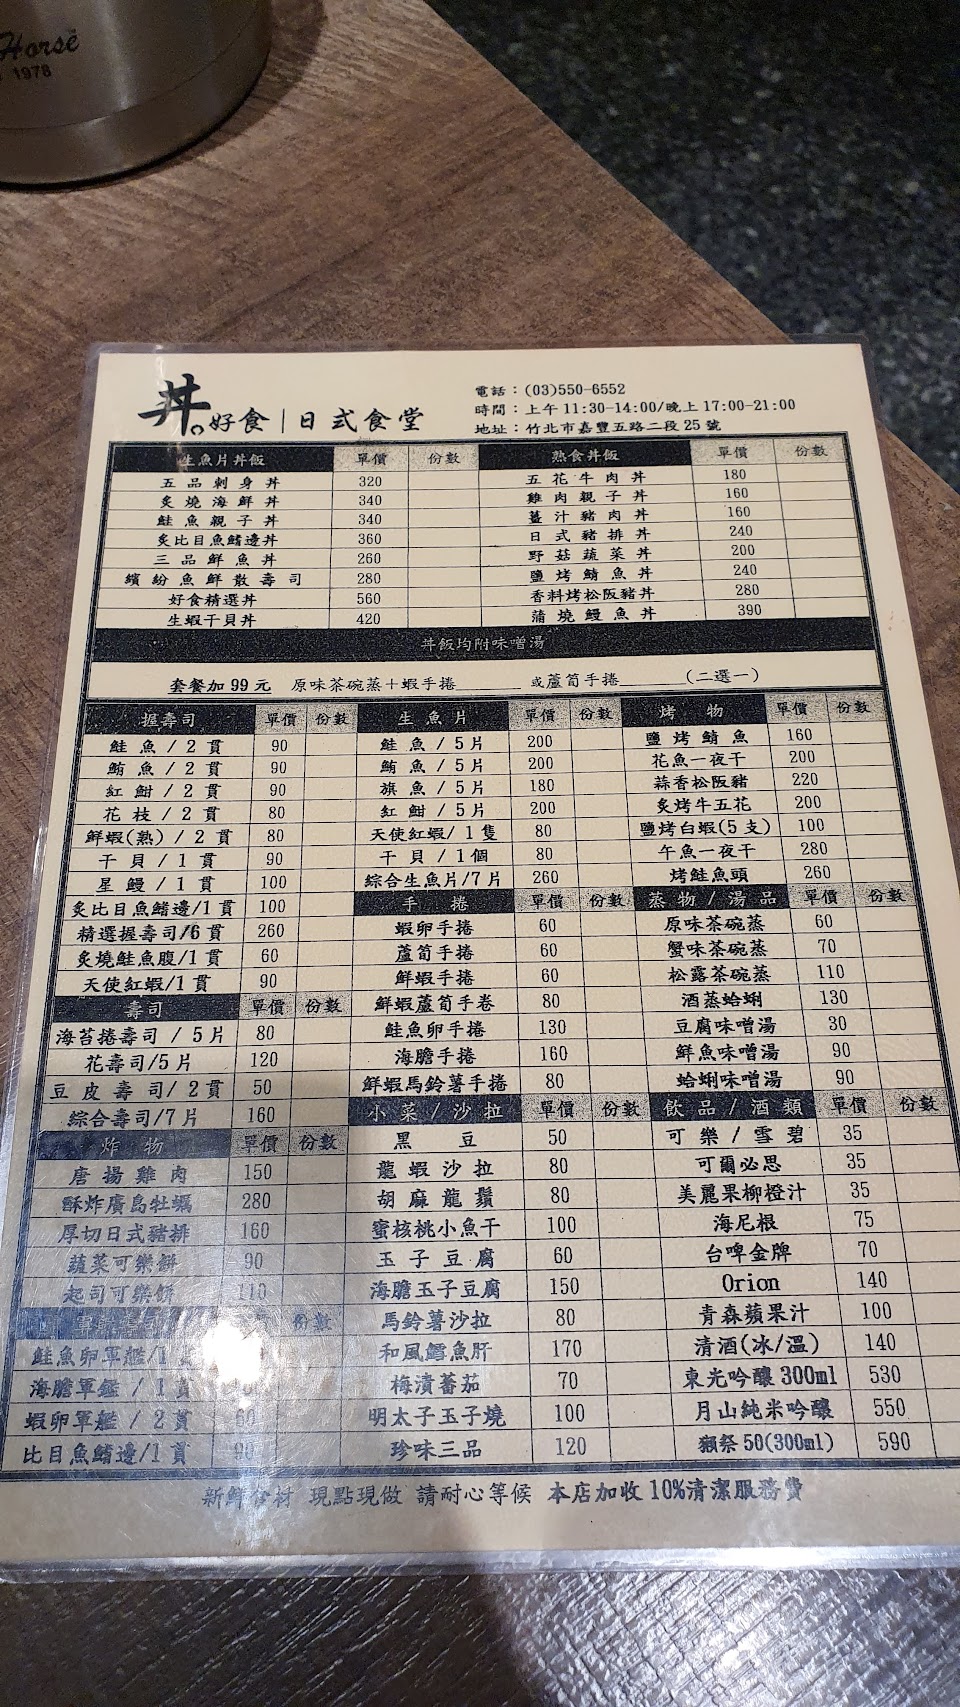 Horse
1978
丼。好食|日式食堂
電話:(03)550-6552
時間:上午11:30-14:00/晚上17:00-21:00
地址:竹北市嘉豐五路二段25號
生魚片丼飯 單價 份數
五品刺身丼 320
炙燒海鮮丼 340
鮭魚親子丼 340
炙比目魚鰭邊丼 360
三品鮮魚丼 260
繽紛魚鮮散壽司 280
好食精選丼 560
生蝦干貝丼 420
熟食丼飯 單價 份數
五花牛肉丼 180
雞肉親子丼 160
薑汁豬肉丼 160
日式豬排丼 240
野菇蔬菜丼 200
鹽烤鯖魚丼 240
香料烤松阪豬丼 280
蒲燒鰻魚丼 390
丼飯均附味噌湯
套餐加99元 原味茶碗蒸+蝦手捲______ 或蘆筍手捲______(二選一)
握壽司 單價 份數
鮭魚/2貫 90
鮪魚/2貫 90
紅魽/2貫 90
花枝/2貫 80
鮮蝦(熟)/2貫 80
干貝/1貫 90
星鰻/1貫 100
炙比目魚鰭邊/1貫 100
精選握壽司/6貫 260
炙燒鮭魚腹/1貫 60
天使紅蝦/1貫 90
壽司 單價 份數
海苔捲壽司/5片 80
花壽司/5片 120
豆皮壽司/2貫 50
綜合壽司/7片 160
炸物 單價 份數
唐揚雞肉 150
酥炸廣島牡蠣 280
厚切日式豬排 160
蔬菜可樂餅 90
起司可樂餅 110
份數
鮭魚卵軍艦/1
海膽軍艦/1貫
蝦卵軍艦/2貫 60
比目魚鰭邊/1貫 90
生魚片 單價 份數
鮭魚/5片 200
鮪魚/5片 200
旗魚/5片 180
紅魽/5片 200
天使紅蝦/1隻 80
干貝/1個 80
綜合生魚片/7片 260
手捲 單價 份數
蝦卵手捲 60
蘆筍手捲 60
鮮蝦手捲 60
鮮蝦蘆筍手卷 80
鮭魚卵手捲 130
海膽手捲 160
鮮蝦馬鈴薯手捲 80
小菜/沙拉 單價 份數
黑豆 50
龍蝦沙拉 80
胡麻龍鬚 80
蜜核桃小魚干 100
玉子豆腐 60
海膽玉子豆腐 150
馬鈴薯沙拉 80
和風鱈魚肝 170
梅漬蕃茄 70
明太子玉子燒 100
珍味三品 120
烤物 單價 份數
鹽烤鯖魚 160
花魚一夜干 200
蒜香松阪豬 220
炙烤牛五花 200
鹽烤白蝦(5支) 100
午魚一夜干 280
烤鮭魚頭 260
蒸物/湯品 單價 份數
原味茶碗蒸 60
蟹味茶碗蒸 70
松露茶碗蒸 110
酒蒸蛤蜊 130
豆腐味噌湯 30
鮮魚味噌湯 90
蛤蜊味噌湯 90
飲品/酒類 單價 份數
可樂/雪碧 35
可爾必思 35
美麗果柳橙汁 35
海尼根 75
台啤金牌 70
Orion 140
青森蘋果汁 100
清酒(冰/溫) 140
東光吟釀300ml 530
月山純米吟釀 550
獺祭50(300ml) 590
新鮮食材 現點現做 請耐心等候 本店加收10%清潔服務費